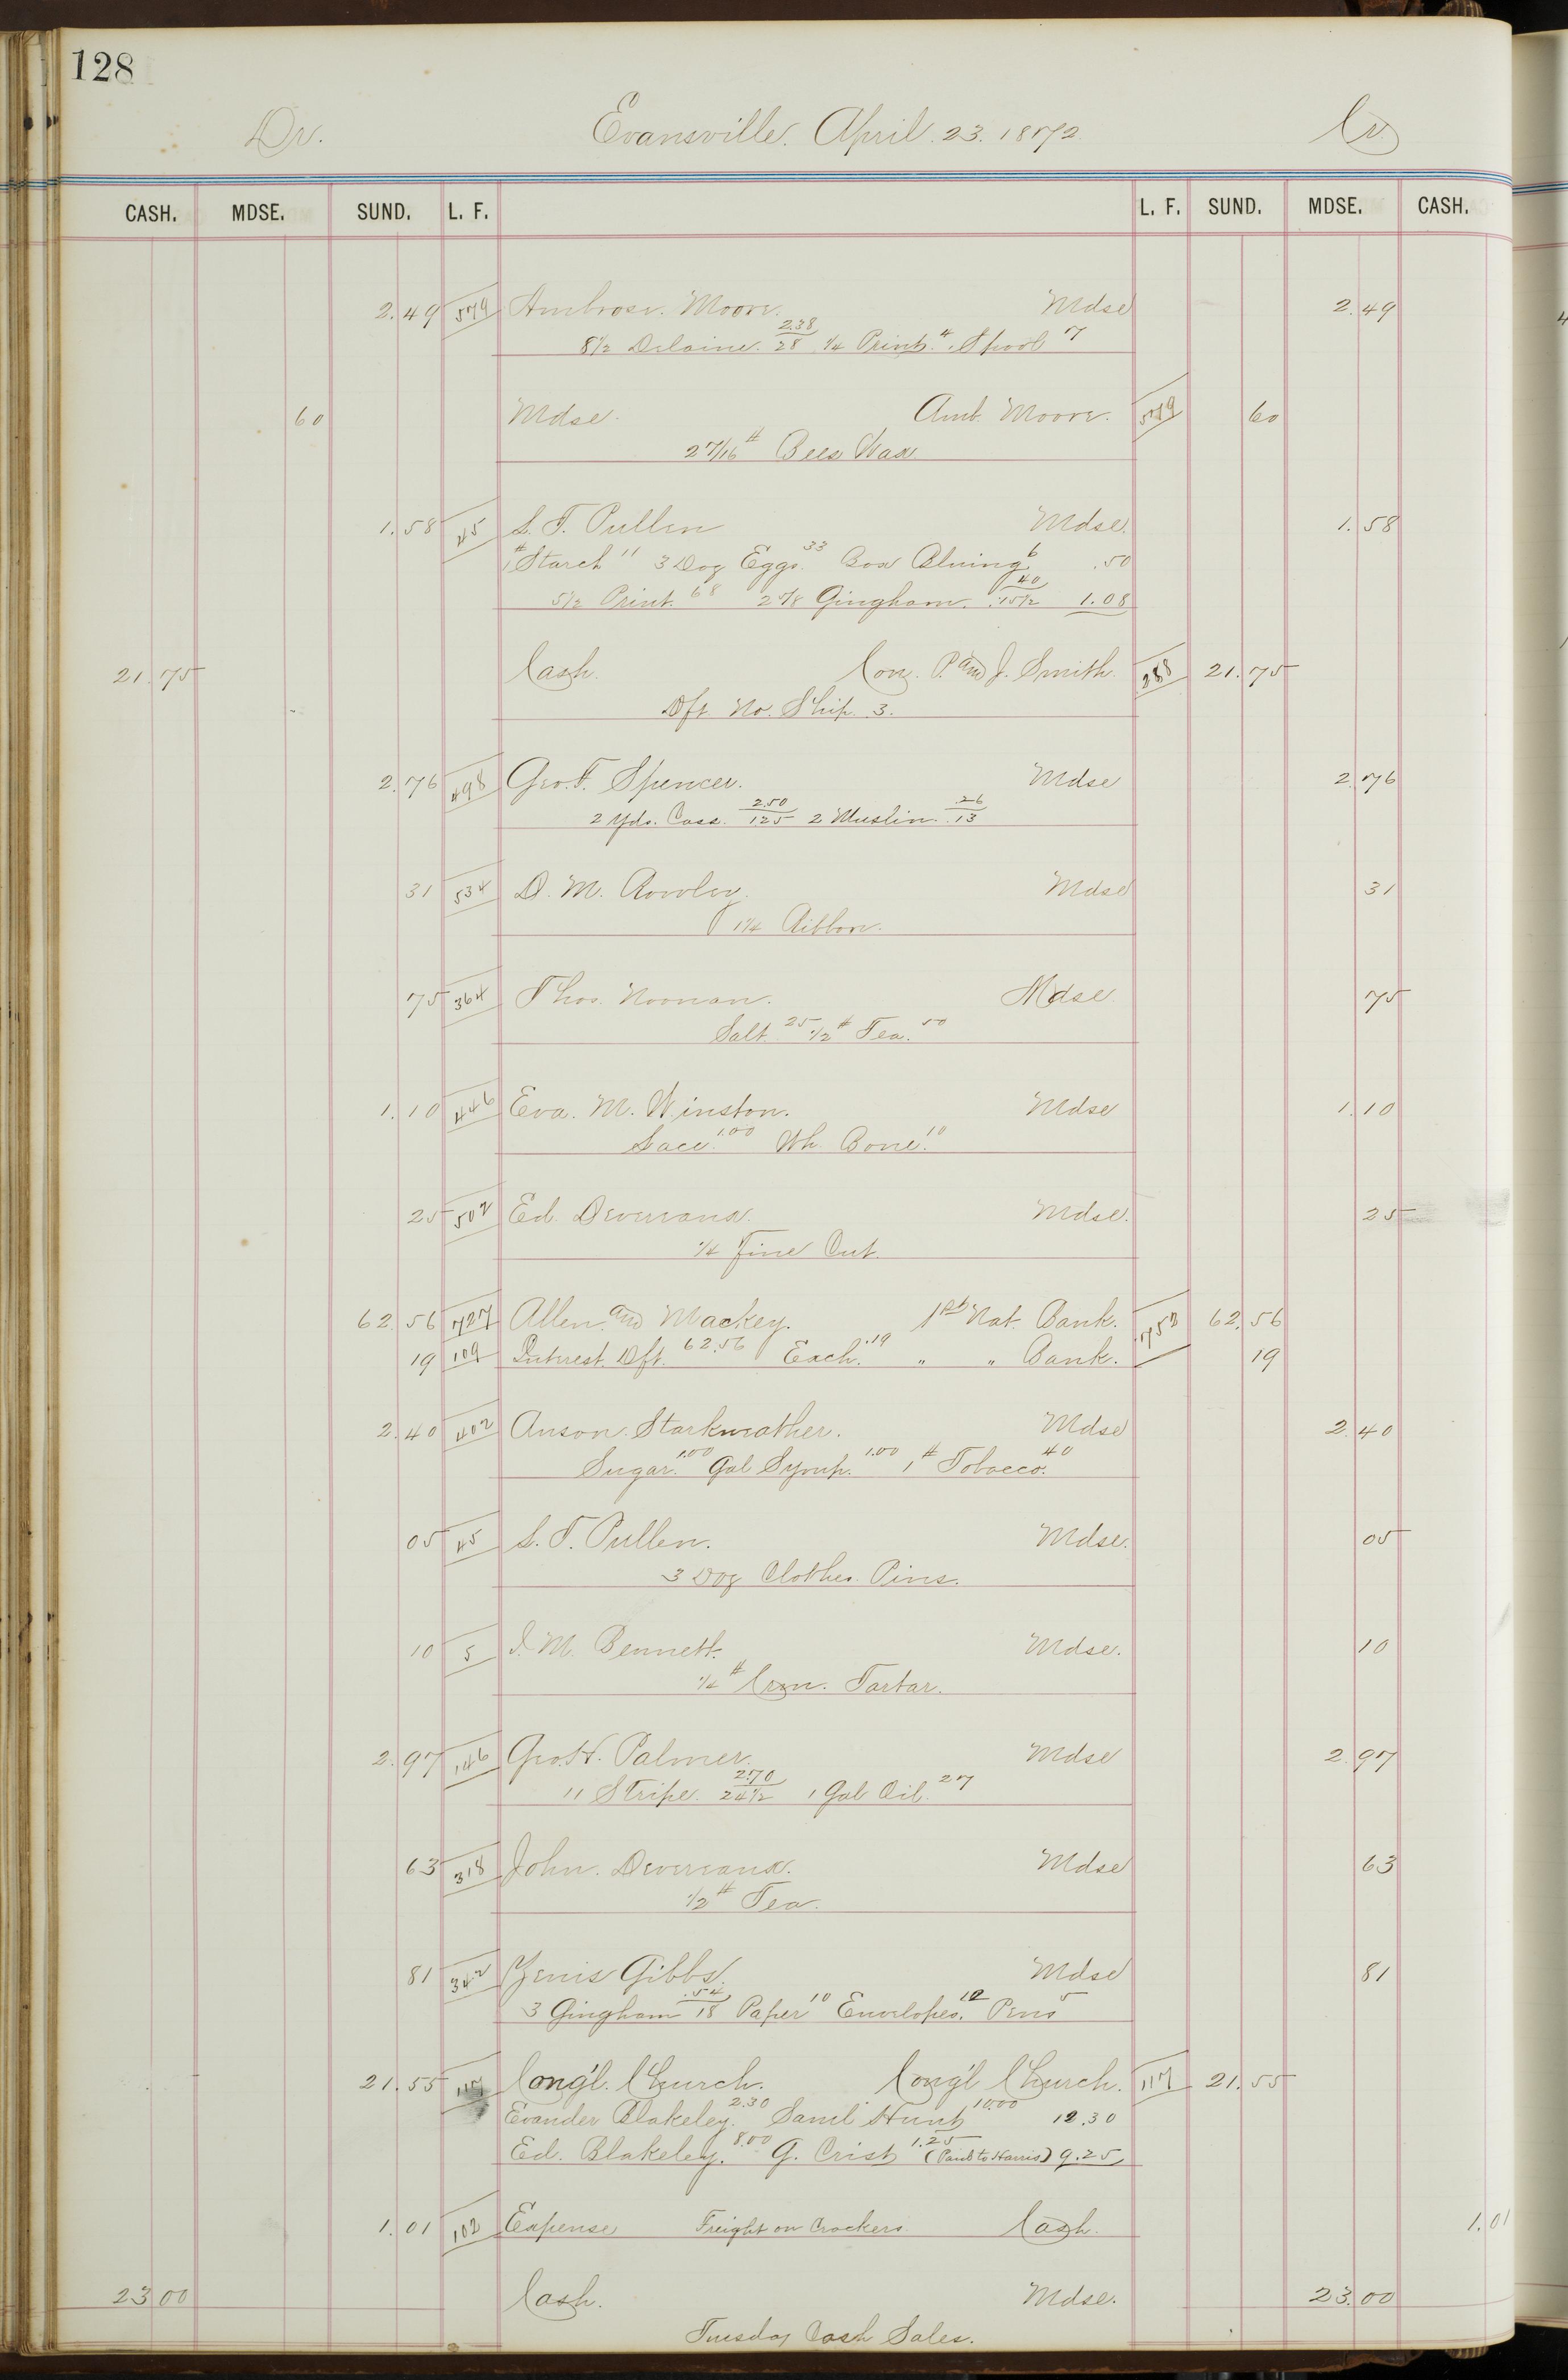 128
Dr. Evansville. April. 23. 1872 Cr.
CASH. MDSE. SUND. L. F. L. F. SUND. MDSE. CASH.
2.49 579 Ambrose. Moore. Mdse 2.49
8 1/2 Delaine. 2.38/28 1/4 Print. 4 Spool 7
60 Mdse. Amb. Moore. 579 60
2 7/16 # Bees Wax
1.58 45 S. T. Pullen Mdse. 1.58
1 # Starch 11 3 Doz Eggs. 33 Box Bluing 6 .50
5 1/2 Print. 68 2 5/8 Gingham. 40/.15 1/2 1.08
21.75 Cash. Con. P. and J. Smith. 288 21.75
Dft. No. Ship. 3.
2.76 498 Geo. F. Spencer. Mdse 2.76
2 Yds. Cass. 2.50/125 2 Muslin. .26/.13
31 534 D. M. Rowley. Mdse 31
1 1/4 Ribbon.
75 364 Thos. Noonan. Mdse 75
Salt. 25 1/2 # Tea. 50
1.10 446 Eva. M. Winston. Mdse 1.10
Lace. 1.00 Wh. Bone. 10
25 502 Ed. Devereaux. Mdse. 25
1/4 Fine Cut.
62.56 727 Allen. and Mackey. 1st Nat. Bank. 753 62.56
19 109 Interest. Dft. 62.56 Exch. .19 " " Bank. 19
2.40 402 Anson. Starkweather. Mdse 2.40
Sugar. 1.00 Gal Syrup. 1.00 1 # Tobacco. 40
05 45 S. T. Pullen. Mdse. 05
3 Doz Clothes. Pins.
10 5 I. M. Bennett. Mdse. 10
1/4 # Crm. Tartar.
2.97 146 Geo. H. Palmer. Mdse 2.97
11 Stripe. 2.70/24 1/2 1 Gal Oil. 27
63 318 John. Devereaux. Mdse 63
1/2 # Tea.
81 342 Zenis Gibbs. Mdse 81
3 Gingham .54/18 Paper 10 Envelopes. 12 Pens 5
21.55 117 Cong'l. Church. Cong'l Church. 117 21.55
Evander Blakeley. 2.30 Saml Hunt 10.00 12.30
Ed. Blakeley. 8.00 G. Crist 1.25 (Paid to Harris) 9.25
1.01 102 Expense Freight on Crackers Cash. 1.01
23.00 Cash. Mdse. 23.00
Tuesday Cash Sales.